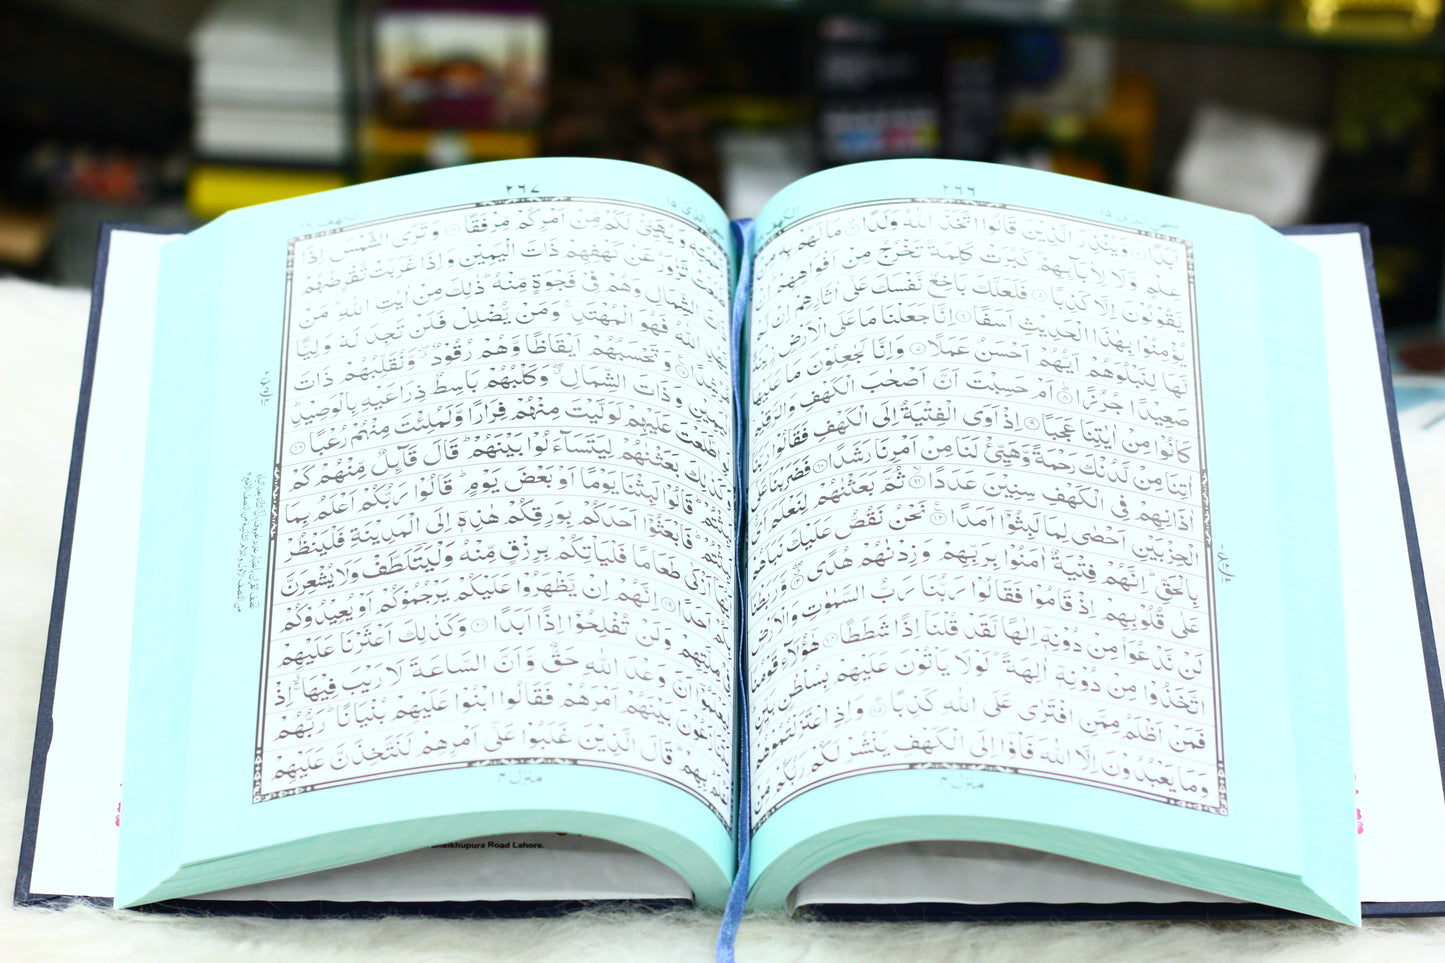 سبحٰن الذي ١٥ ٢٦٦ الكهف
اَبَدًا ۝ وَّيُنْذِرَ الَّذِيْنَ قَالُوا اتَّخَذَ اللّٰهُ وَلَدًا ۝ مَا لَهُمْ بِهٖ
عِلْمٍ وَّلَا لِاٰبَآئِهِمْ كَبُرَتْ كَلِمَةً تَخْرُجُ مِنْ اَفْوَاهِهِمْ اِنْ
يَّقُوْلُوْنَ اِلَّا كَذِبًا ۝ فَلَعَلَّكَ بَاخِعٌ نَّفْسَكَ عَلٰٓى اٰثَارِهِمْ اِنْ لَّمْ
يُؤْمِنُوْا بِهٰذَا الْحَدِيْثِ اَسَفًا ۝ اِنَّا جَعَلْنَا مَا عَلَى الْاَرْضِ
لَّهَا لِنَبْلُوَهُمْ اَيُّهُمْ اَحْسَنُ عَمَلًا ۝ وَاِنَّا لَجٰعِلُوْنَ مَا عَلَيْهَا
صَعِيْدًا جُرُزًا ۝ اَمْ حَسِبْتَ اَنَّ اَصْحٰبَ الْكَهْفِ وَالرَّقِيْمِ
كَانُوْا مِنْ اٰيٰتِنَا عَجَبًا ۝ اِذْ اَوَى الْفِتْيَةُ اِلَى الْكَهْفِ فَقَالُوْا رَبَّنَآ
اٰتِنَا مِنْ لَّدُنْكَ رَحْمَةً وَّهَيِّئْ لَنَا مِنْ اَمْرِنَا رَشَدًا ۝ فَضَرَبْنَا عَلٰٓى
اٰذَانِهِمْ فِى الْكَهْفِ سِنِيْنَ عَدَدًا ۝ ثُمَّ بَعَثْنٰهُمْ لِنَعْلَمَ اَىُّ
الْحِزْبَيْنِ اَحْصٰى لِمَا لَبِثُوْٓا اَمَدًا ۝ نَحْنُ نَقُصُّ عَلَيْكَ نَبَاَهُمْ
بِالْحَقِّ اِنَّهُمْ فِتْيَةٌ اٰمَنُوْا بِرَبِّهِمْ وَزِدْنٰهُمْ هُدًى ۝ وَّرَبَطْنَا
عَلٰى قُلُوْبِهِمْ اِذْ قَامُوْا فَقَالُوْا رَبُّنَا رَبُّ السَّمٰوٰتِ وَالْاَرْضِ
لَنْ نَّدْعُوَا۟ مِنْ دُوْنِهٖٓ اِلٰهًا لَّقَدْ قُلْنَآ اِذًا شَطَطًا ۝ هٰٓؤُلَآءِ قَوْمُنَا
اتَّخَذُوْا مِنْ دُوْنِهٖٓ اٰلِهَةً لَوْلَا يَاْتُوْنَ عَلَيْهِمْ بِسُلْطٰنٍۭ بَيِّنٍ
فَمَنْ اَظْلَمُ مِمَّنِ افْتَرٰى عَلَى اللّٰهِ كَذِبًا ۝ وَاِذِ اعْتَزَلْتُمُوْهُمْ
وَمَا يَعْبُدُوْنَ اِلَّا اللّٰهَ فَاْوٗٓا اِلَى الْكَهْفِ يَنْشُرْ لَكُمْ رَبُّكُمْ مِّنْ
منزل ٤
الذي ١٥ ٢٦٧ الكهف ١٨
وَيُهَيِّئْ لَكُمْ مِّنْ اَمْرِكُمْ مِّرْفَقًا ۝ وَتَرَى الشَّمْسَ اِذَا
طَلَعَتْ تَّزٰوَرُ عَنْ كَهْفِهِمْ ذَاتَ الْيَمِيْنِ وَاِذَا غَرَبَتْ تَّقْرِضُهُمْ
ذَاتَ الشِّمَالِ وَهُمْ فِيْ فَجْوَةٍ مِّنْهُ ذٰلِكَ مِنْ اٰيٰتِ اللّٰهِ مَنْ
يَّهْدِ اللّٰهُ فَهُوَ الْمُهْتَدِ وَمَنْ يُّضْلِلْ فَلَنْ تَجِدَ لَهٗ وَلِيًّا
مُّرْشِدًا ۝ وَتَحْسَبُهُمْ اَيْقَاظًا وَّهُمْ رُقُوْدٌ وَّنُقَلِّبُهُمْ ذَاتَ
الْيَمِيْنِ وَذَاتَ الشِّمَالِ وَكَلْبُهُمْ بَاسِطٌ ذِرَاعَيْهِ بِالْوَصِيْدِ
لَوِ اطَّلَعْتَ عَلَيْهِمْ لَوَلَّيْتَ مِنْهُمْ فِرَارًا وَّلَمُلِئْتَ مِنْهُمْ رُعْبًا ۝
وَكَذٰلِكَ بَعَثْنٰهُمْ لِيَتَسَآءَلُوْا بَيْنَهُمْ قَالَ قَآئِلٌ مِّنْهُمْ كَمْ
لَبِثْتُمْ قَالُوْا لَبِثْنَا يَوْمًا اَوْ بَعْضَ يَوْمٍ قَالُوْا رَبُّكُمْ اَعْلَمُ بِمَا
لَبِثْتُمْ فَابْعَثُوْٓا اَحَدَكُمْ بِوَرِقِكُمْ هٰذِهٖٓ اِلَى الْمَدِيْنَةِ فَلْيَنْظُرْ
اَيُّهَآ اَزْكٰى طَعَامًا فَلْيَاْتِكُمْ بِرِزْقٍ مِّنْهُ وَلْيَتَلَطَّفْ وَلَا يُشْعِرَنَّ
بِكُمْ اَحَدًا ۝ اِنَّهُمْ اِنْ يَّظْهَرُوْا عَلَيْكُمْ يَرْجُمُوْكُمْ اَوْ يُعِيْدُوْكُمْ
فِيْ مِلَّتِهِمْ وَلَنْ تُفْلِحُوْٓا اِذًا اَبَدًا ۝ وَكَذٰلِكَ اَعْثَرْنَا عَلَيْهِمْ
لِيَعْلَمُوْٓا اَنَّ وَعْدَ اللّٰهِ حَقٌّ وَّاَنَّ السَّاعَةَ لَا رَيْبَ فِيْهَا اِذْ
يَتَنَازَعُوْنَ بَيْنَهُمْ اَمْرَهُمْ فَقَالُوا ابْنُوْا عَلَيْهِمْ بُنْيَانًا رَبُّهُمْ
اَعْلَمُ بِهِمْ قَالَ الَّذِيْنَ غَلَبُوْا عَلٰٓى اَمْرِهِمْ لَنَتَّخِذَنَّ عَلَيْهِمْ
منزل ٤
Sheikhupura Road Lahore.